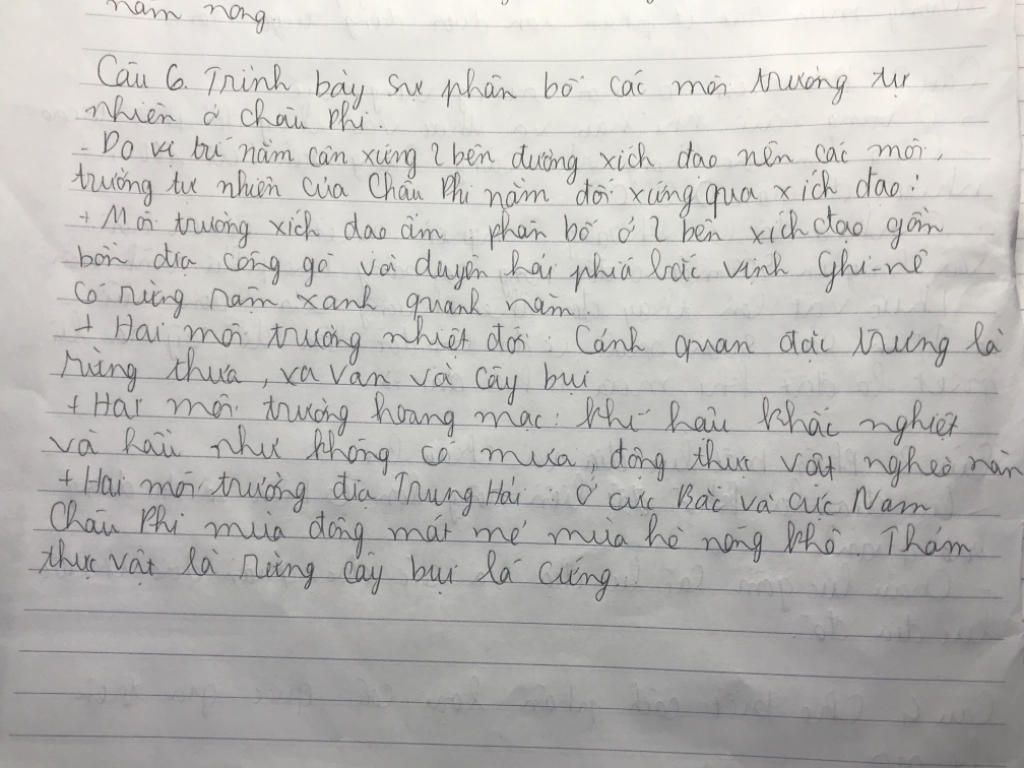 năm nóng
Câu 6. Trình bày sự phân bố các môi trường tự
nhiên ở châu Phi.
- Do vị trí nằm cân xứng 2 bên đường xích đạo nên các môi
trường tự nhiên của Châu Phi nằm đối xứng qua xích đạo:
+ Môi trường xích đạo ẩm phân bố ở 2 bên xích đạo gồm
bồn địa công gô và duyên hải phía bắc vịnh Ghi-nê
có rừng rậm xanh quanh năm.
+ Hai môi trường nhiệt đới: Cảnh quan đặc trưng là
rừng thưa, xa van và cây bụi
+ Hai môi trường hoang mạc: khí hậu khắc nghiệt
và hầu như không có mưa, động thực vật nghèo nàn
+ Hai môi trường địa Trung Hải: Ở cực Bắc và cực Nam
Châu Phi mùa đông mát mẻ mùa hè nóng khô. Thảm
thực vật là rừng cây bụi lá cứng